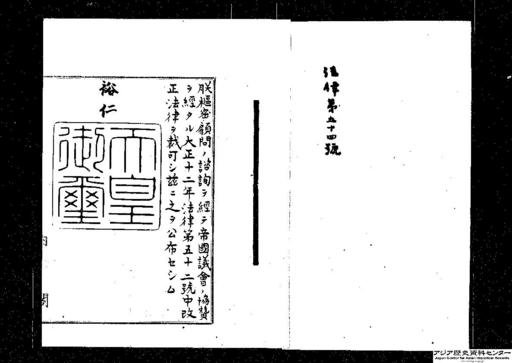 法律第五十四號
朕樞密顧問ノ諮詢ヲ經テ帝國議會ノ協贊
ヲ經タル大正十二年法律第五十二號中改
正法律ヲ裁可シ茲ニ之ヲ公布セシム
裕仁
天皇
御璽
内閣
アジア歴史資料センター
Japan Center for Asian Historical Records